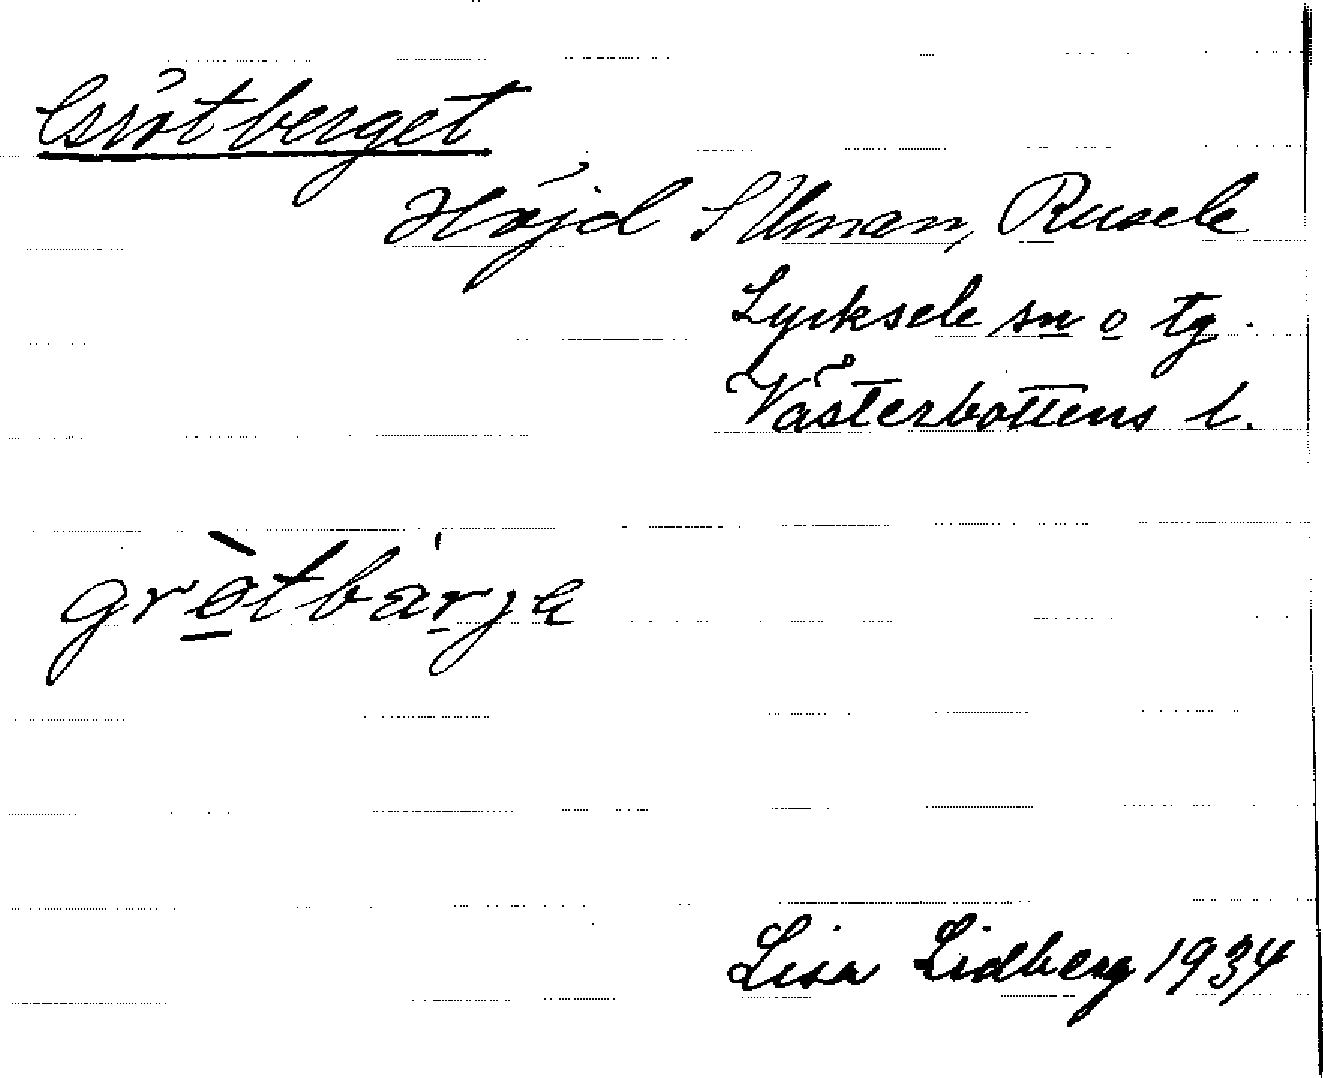 Grötberget
Höjd S Uman, Rusele
Lycksele sn o tg.
Västerbottens l.
grò̲tbar̲je
Lisa Lidberg 1934